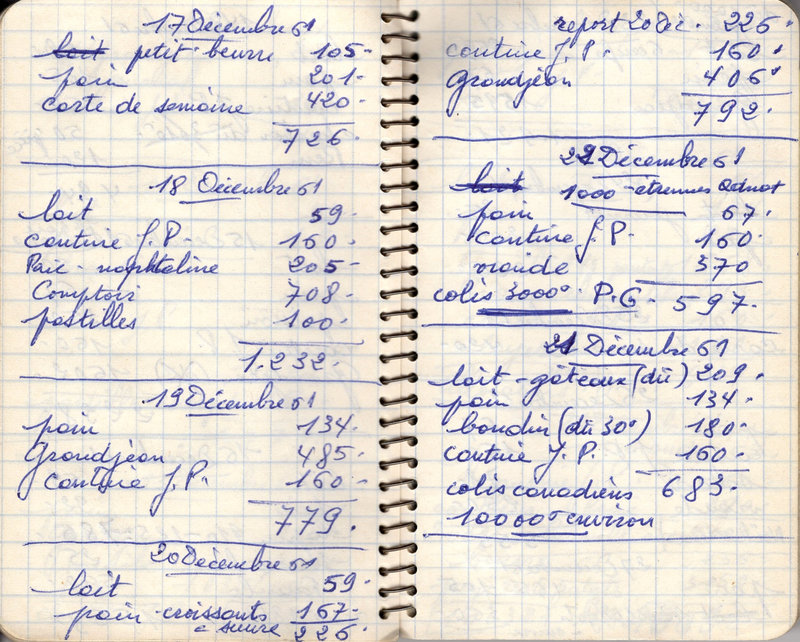 17 Décembre 61
lait petit beurre 105-
pain 201-
carte de semaine 420-
726-
18 Décembre 61
lait 59-
cantine J.P. 160-
Paic - naphtaline 205-
Comptoir 708-
pastilles 100-
1.232-
19 Décembre 61
pain 134-
Grandjean 485-
cantine J.P. 160-
779.
20 Décembre 61
lait 59-
pain - croissants 167-
226-
report 20 Déc. 226.
cantine J.P. 160.
Grandjean 406.
792.
22 Décembre 61
lait
1000 - étrennes
pain 67.
cantine J.P. 160.
viande 370
colis 3000° P.G. 597.
21 Décembre 61
lait - gâteaux (dû) 209.
pain 134.
boudin (dû 30°) 180.
cantine J.P. 160.
colis canadiens 683.
10000° environ